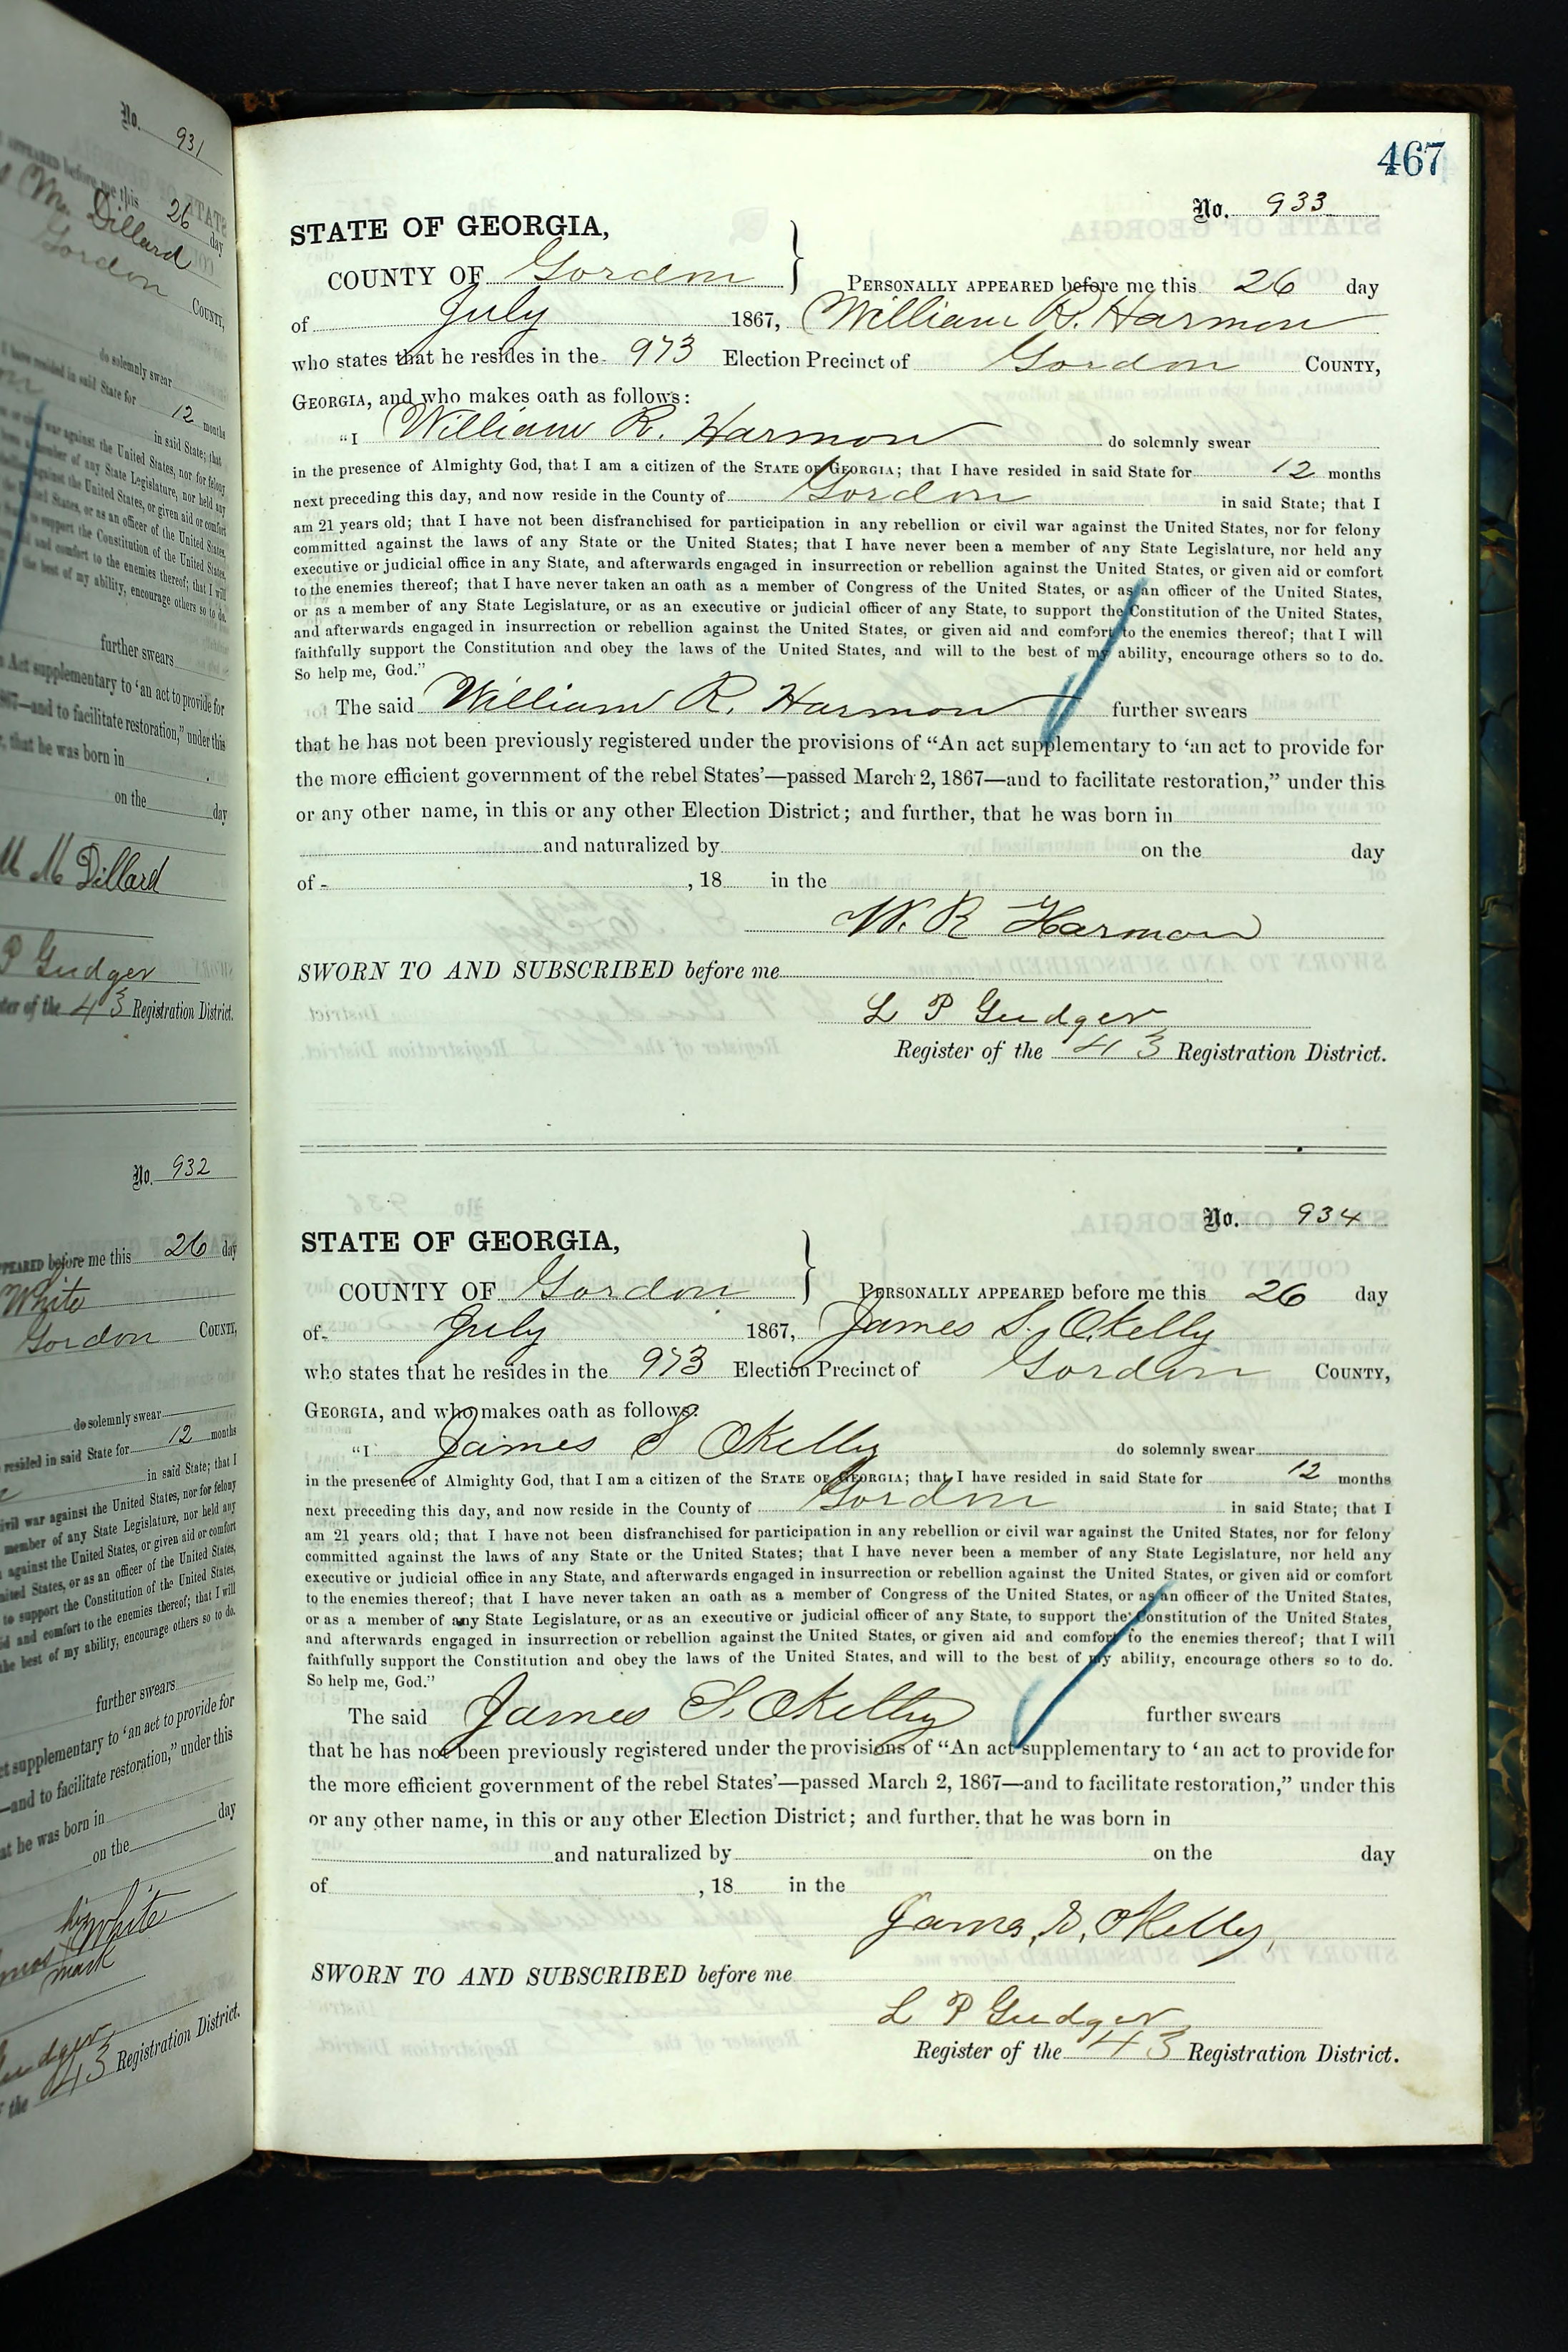 No. 931
APPEARED before me this 26 day
M. Dillard
Gordon COUNTY,
do solemnly swear
I have resided in said State for 12 months
in said State; that
war against the United States, nor for felony
member of any State Legislature, nor held any
against the United States, or given aid or comfort
United States, or as an officer of the United States,
to support the Constitution of the United States,
and comfort to the enemies thereof; that I will
the best of my ability, encourage others so to do.
further swears
Act supplementary to ‘an act to provide for
—and to facilitate restoration,” under this
that he was born in
on the day
M Dillard
P Gudger
of the 43 Registration District.
No. 932
APPEARED before me this 26 day
White
Gordon COUNTY,
do solemnly swear
resided in said State for 12 months
in said State; that I
civil war against the United States, nor for felony
member of any State Legislature, nor held any
against the United States, or given aid or comfort
United States, or as an officer of the United States,
to support the Constitution of the United States,
and comfort to the enemies thereof; that I will
the best of my ability, encourage others so to do.
further swears
supplementary to ‘an act to provide for
—and to facilitate restoration,” under this
that he was born in
on the day
his
White
mark
Gudger
the 43 Registration District.
467
No. 933
STATE OF GEORGIA,
COUNTY OF Gordon } PERSONALLY APPEARED before me this 26 day
of July 1867, William R. Harmon
who states that he resides in the 973 Election Precinct of Gordon COUNTY,
GEORGIA, and who makes oath as follows:
“I William R. Harmon do solemnly swear
in the presence of Almighty God, that I am a citizen of the STATE OF GEORGIA; that I have resided in said State for 12 months
next preceding this day, and now reside in the County of Gordon in said State; that I
am 21 years old; that I have not been disfranchised for participation in any rebellion or civil war against the United States, nor for felony
committed against the laws of any State or the United States; that I have never been a member of any State Legislature, nor held any
executive or judicial office in any State, and afterwards engaged in insurrection or rebellion against the United States, or given aid or comfort
to the enemies thereof; that I have never taken an oath as a member of Congress of the United States, or as an officer of the United States,
or as a member of any State Legislature, or as an executive or judicial officer of any State, to support the Constitution of the United States,
and afterwards engaged in insurrection or rebellion against the United States, or given aid and comfort to the enemies thereof; that I will
faithfully support the Constitution and obey the laws of the United States, and will to the best of my ability, encourage others so to do.
So help me, God.”
The said William R. Harmon further swears
that he has not been previously registered under the provisions of “An act supplementary to ‘an act to provide for
the more efficient government of the rebel States’—passed March 2, 1867—and to facilitate restoration,” under this
or any other name, in this or any other Election District; and further, that he was born in
and naturalized by on the day
of , 18 in the
W. R Harmon
SWORN TO AND SUBSCRIBED before me
L P Gudger
Register of the 43 Registration District.
No. 934
STATE OF GEORGIA,
COUNTY OF Gordon } PERSONALLY APPEARED before me this 26 day
of July 1867, James S. OKelly
who states that he resides in the 973 Election Precinct of Gordon COUNTY,
GEORGIA, and who makes oath as follows:
“I James S OKelly do solemnly swear
in the presence of Almighty God, that I am a citizen of the STATE OF GEORGIA; that I have resided in said State for 12 months
next preceding this day, and now reside in the County of Gordon in said State; that I
am 21 years old; that I have not been disfranchised for participation in any rebellion or civil war against the United States, nor for felony
committed against the laws of any State or the United States; that I have never been a member of any State Legislature, nor held any
executive or judicial office in any State, and afterwards engaged in insurrection or rebellion against the United States, or given aid or comfort
to the enemies thereof; that I have never taken an oath as a member of Congress of the United States, or as an officer of the United States,
or as a member of any State Legislature, or as an executive or judicial officer of any State, to support the Constitution of the United States,
and afterwards engaged in insurrection or rebellion against the United States, or given aid and comfort to the enemies thereof; that I will
faithfully support the Constitution and obey the laws of the United States, and will to the best of my ability, encourage others so to do.
So help me, God.”
The said James S. OKelly further swears
that he has not been previously registered under the provisions of “An act supplementary to ‘an act to provide for
the more efficient government of the rebel States’—passed March 2, 1867—and to facilitate restoration,” under this
or any other name, in this or any other Election District; and further, that he was born in
and naturalized by on the day
of , 18 in the
James, S, OKelly,
SWORN TO AND SUBSCRIBED before me
L P Gudger
Register of the 43 Registration District.